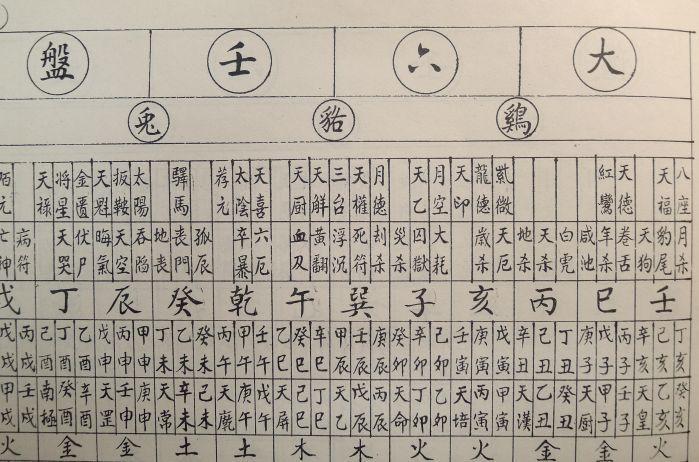 大六壬盤
雞貉兔
八座 天福 天德 紅鸞 紫微 龍德 天印 月空 天乙 月德 天權 三台 天解 天厨 天喜 太陰 荐元 驛馬 太陽 扳鞍 天魁 金匱 将星 天禄
月杀 豹尾 天狗 卷舌 年杀 咸池 白虎 天杀 地杀 天厄 歳杀 大耗 囚獄 災杀 刦杀 死符 浮沉 黄翻 血刃 六厄 卒暴 孤辰 丧門 地丧 吞陷 天空 晦氣 伏尸 天哭 病符 亡神
壬巳丙亥子巽午乾癸辰丁戌
丁亥 己亥 辛亥 丙子 戊子 庚子 丁丑 己丑 辛丑 戊寅 庚寅 壬寅 己卯 辛卯 癸卯 庚辰 壬辰 甲辰 辛巳 癸巳 乙巳 壬午 甲午 丙午 癸未 乙未 丁未 甲申 丙申 戊申 乙酉 丁酉 己酉 丙戌 戊戌
乙亥 癸亥 天皇 壬子 甲子 天厨 癸丑 乙丑 天漢 甲寅 丙寅 天培 乙卯 丁卯 天命 丙辰 戊辰 天乙 丁巳 己巳 天屏 戊午 庚午 天魔 己未 辛未 天常 庚申 壬申 天罡 辛酉 癸酉 南極 壬戌 甲戌
火金金火火木木土土金金火